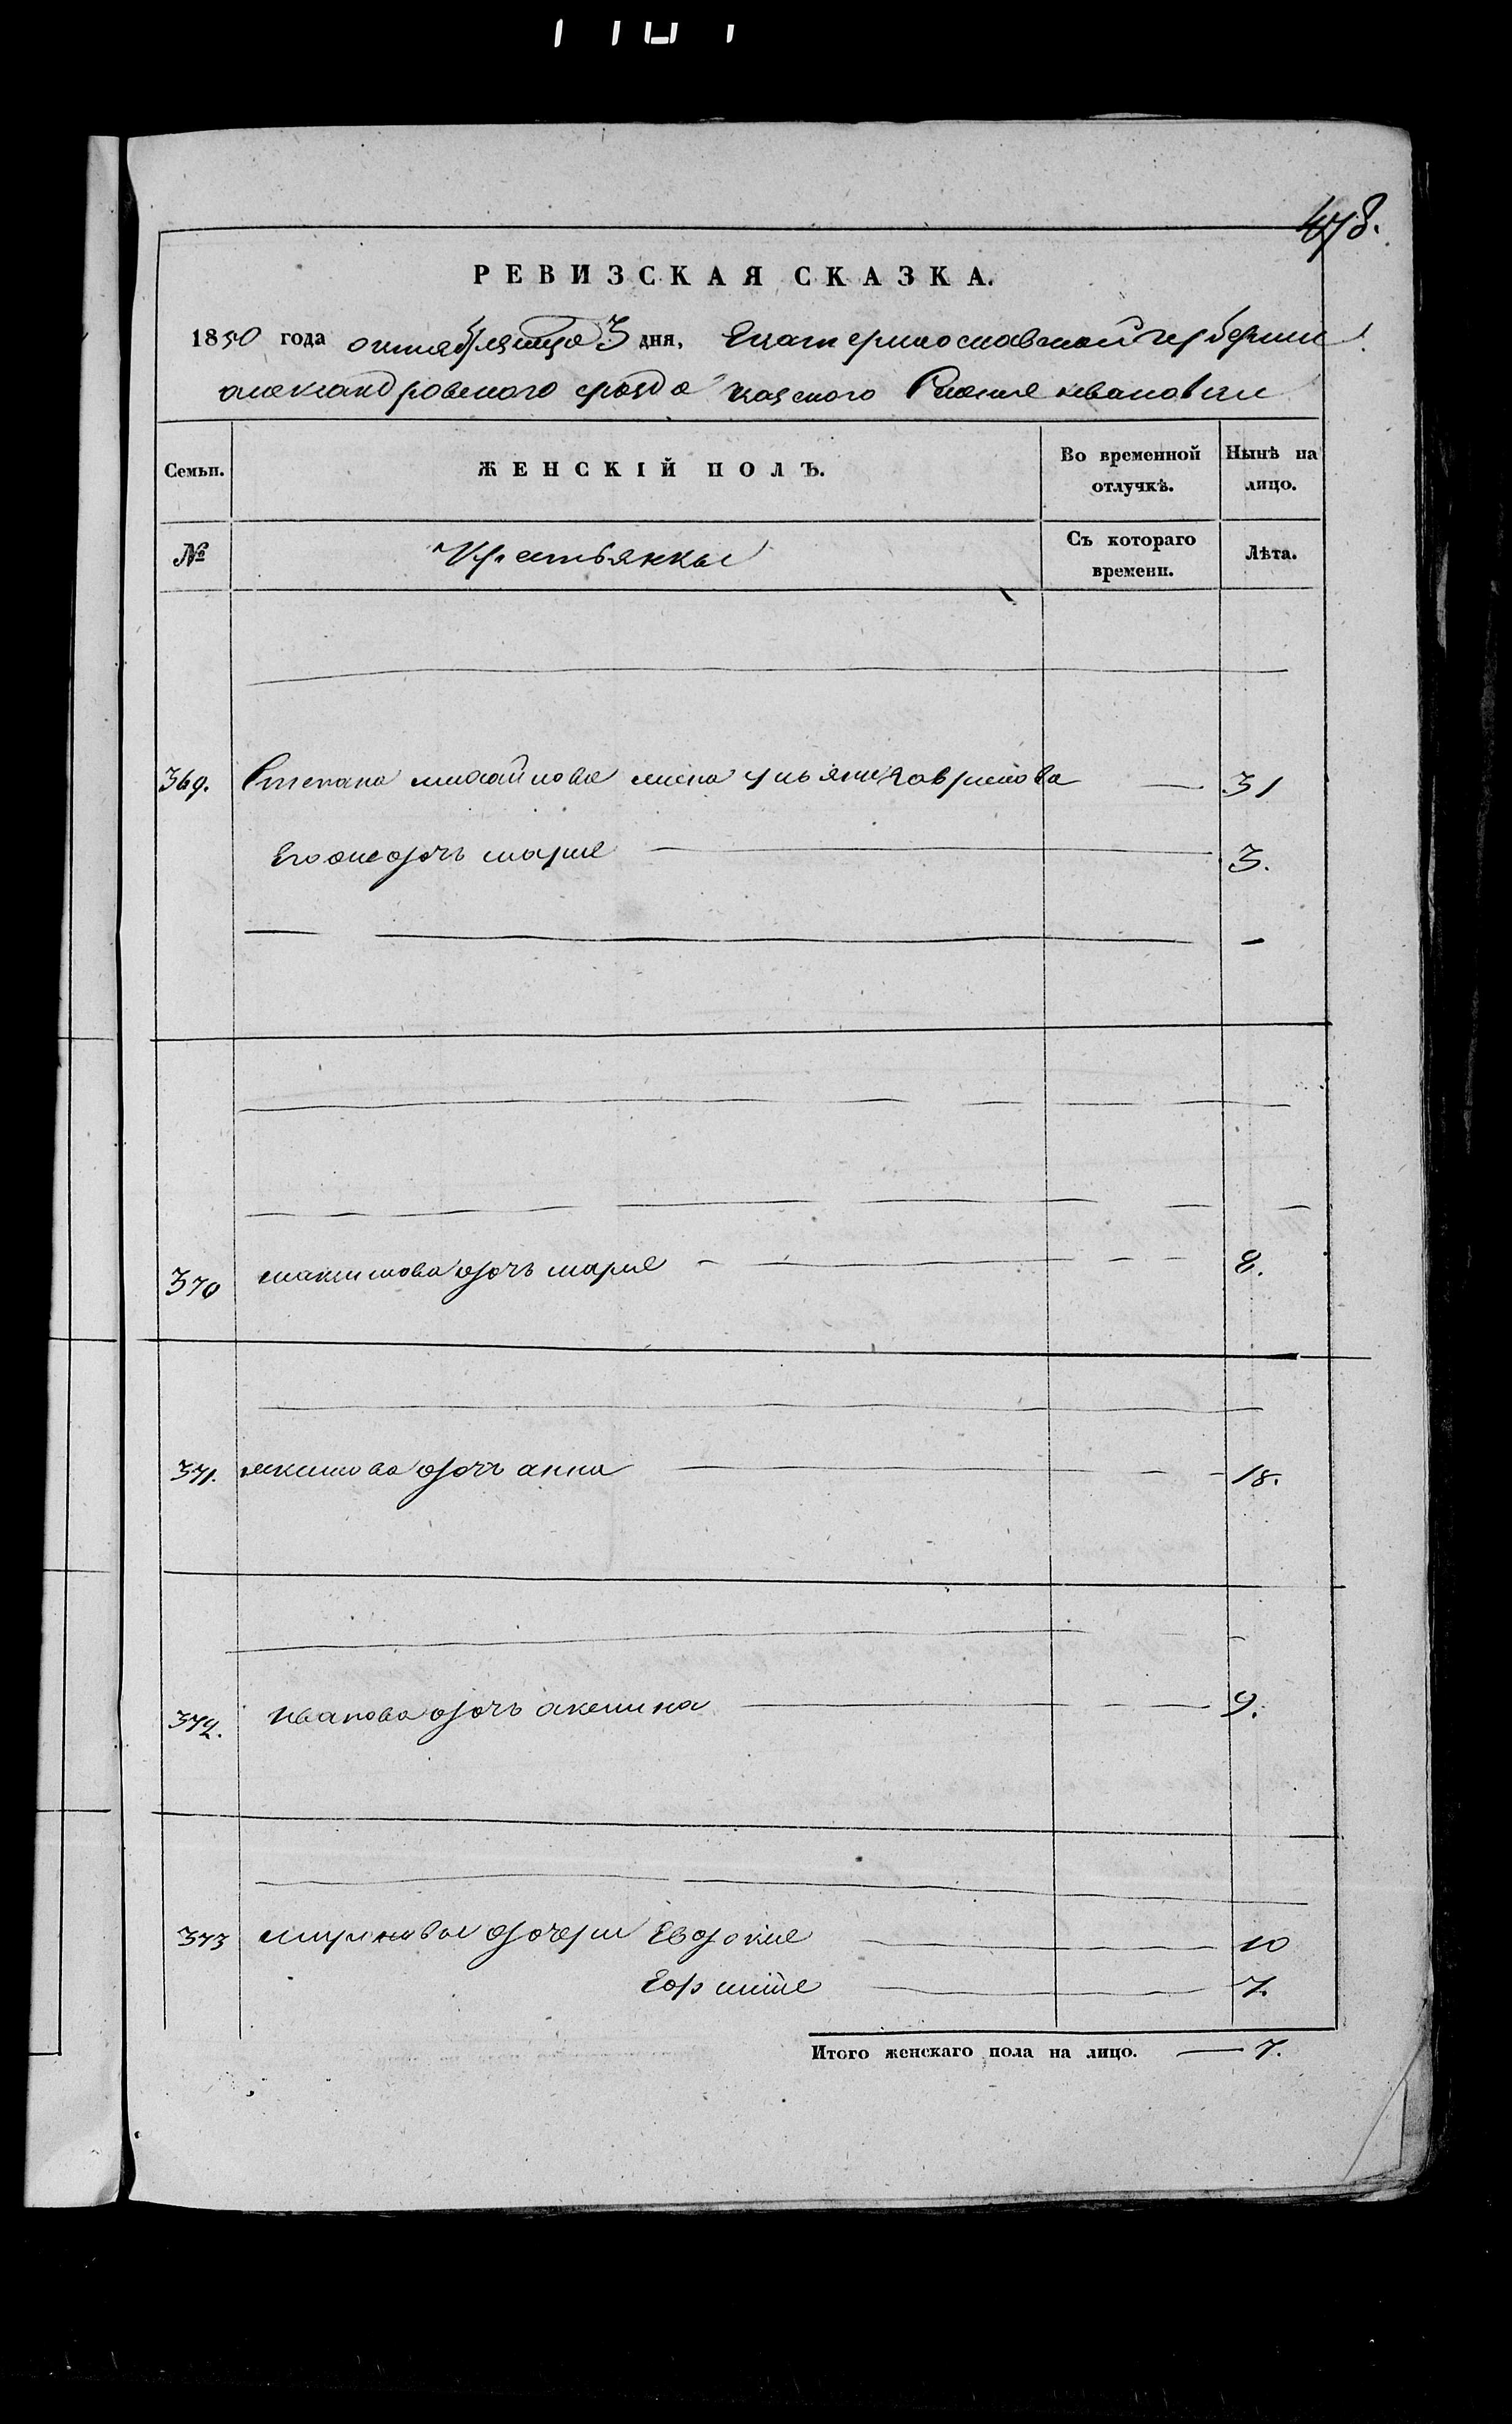 478.
РЕВИЗСКАЯ СКАЗКА.
1850 года октября месяца 3 дня, Екатеринославской губернии
александровского уезда казеного Селения ивановки
Семьи. ЖЕНСКІЙ ПОЛЪ. Во временной отлучкѣ. Нынѣ на лицо.
№ Крестьянки Съ котораго времени. Лѣта.
369. Степана михайлова жена ульяна гаврилова 31
Его же дочь марие 3.
370 максимова дочь марие 8.
371. якимова дочь анна 18.
372. иванова дочь акелина 9.
373 дочери Евдокие 10
Ефимие 7.
Итого женскаго пола на лицо. 7.